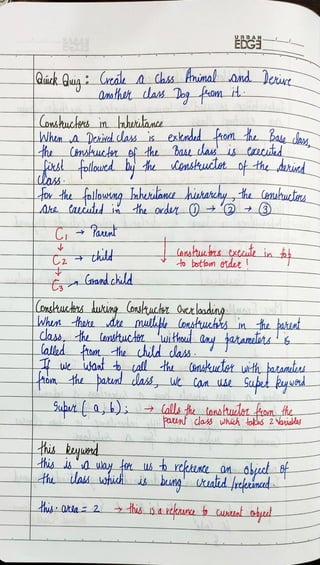 URBAN
EDGE
Quick Quiz : Create a class Animal and Derive
another class Dog from it.
Constructors in Inheritance
When a Derived class is extended from the Base class,
the Constructor of the Base class is executed
first followed by the constructor of the derived
class.
For the following Inheritance hierarchy, the constructors
are executed in the order ① → ② → ③
C1 → Parent
↓
C2 → child
↓
C3 → Grand child
↓ Constructors execute in top
to bottom order!
Constructors during Constructor Overloading
When there are multiple constructors in the parent
class, the constructor without any parameters is
called from the child class.
If we want to call the constructor with parameters
from the parent class, we can use super keyword
super ( a, b); → calls the constructor from the
parent class which takes 2 variables
this keyword
this is a way for us to reference an object of
the class which is being created/referenced.
this. area = 2 → this is a reference to current object